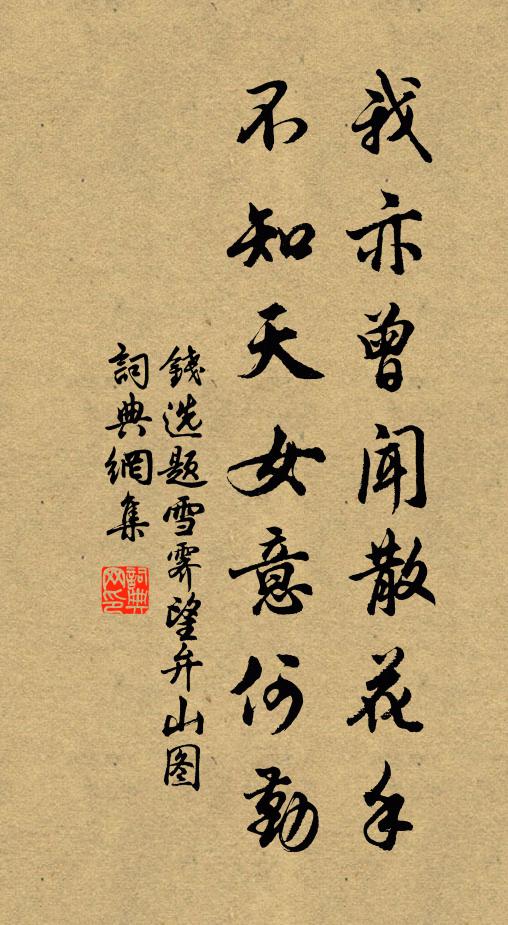 我亦曾闻散花手
不知天女意何勤
錢选题雪霁望弁山图
詞典網集
詞典
网印